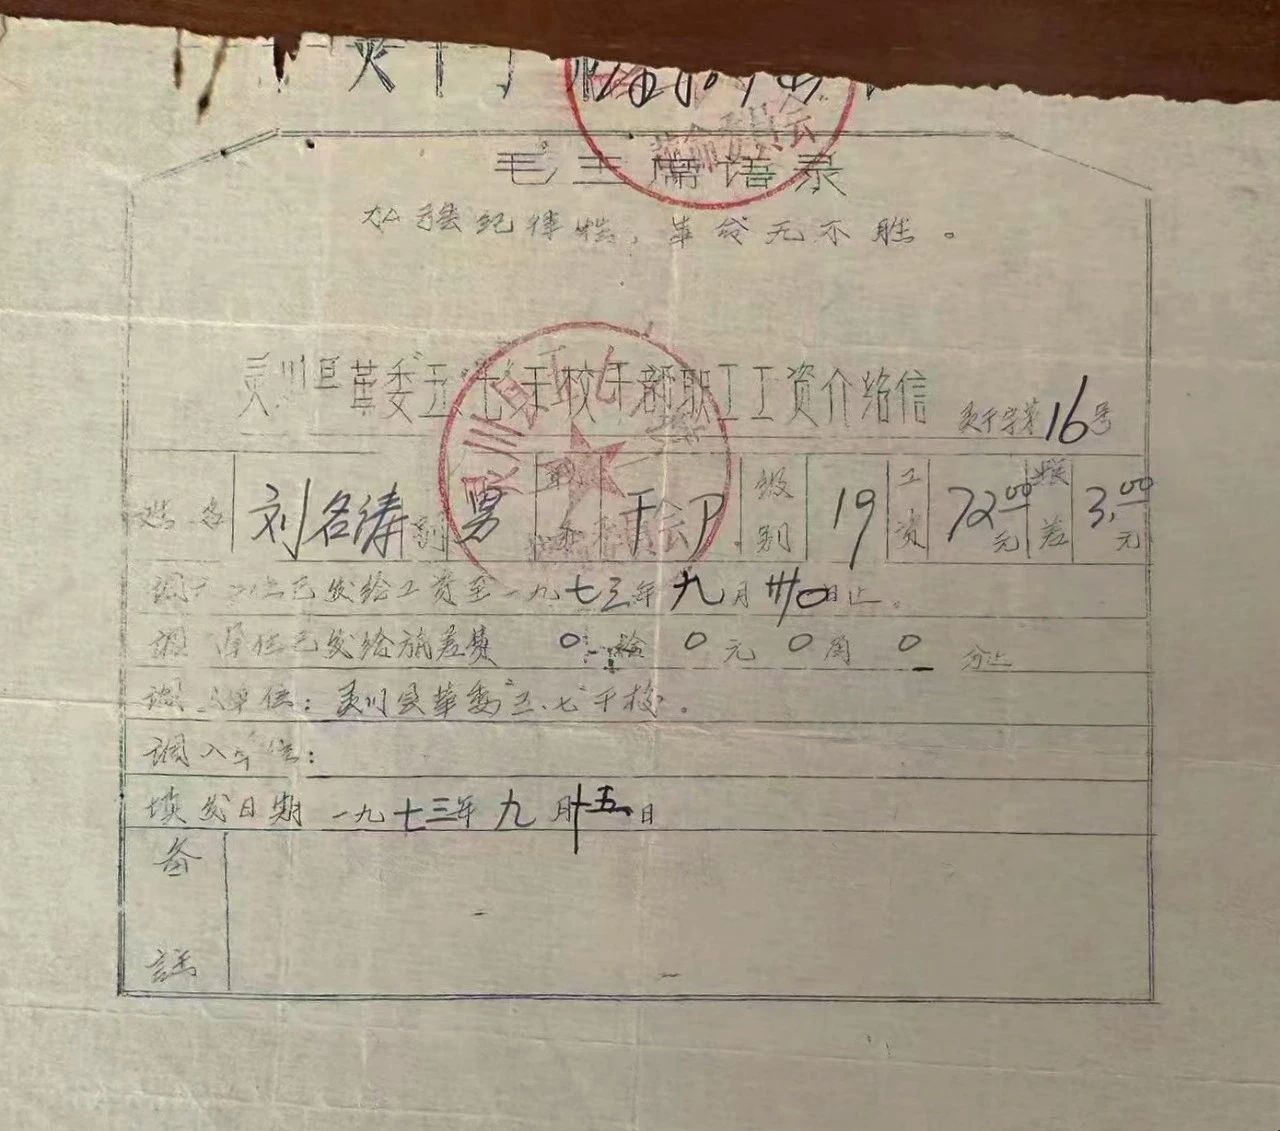 革命委员会
毛主席语录
加强纪律性，革命无不胜。
灵川县革委五·七干校干部职工工资介绍信
灵干字第16号
姓名 刘名涛 别 男 干户 级别 19 工资 72.00元 差 3.00元
调 已发给工资至一九七三年九月卅0日止。
调 单位已发给旅差费 0 拾 0 元 0 角 0 分止
调 单位：灵川县革委"五·七"干校.
调入单位：
填发日期 一九七三年九月十五日
备註